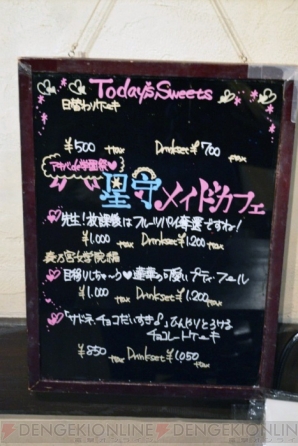 Today's Sweets
日替わりケーキ
¥500 +tax Drinkset ¥700 +tax
アキバde学園祭
星守メイドカフェ
先生!放課後はフルーツパイ
¥1,000 +tax Drinkset ¥1,200 +tax
目移りしちゃ〜う 蓮華の可愛いプティ・フール
¥1,000 +tax Drinkset ¥1,200 +tax
「サドネ、チョコだいすき」ひんやりとろける
チョコレートケーキ
¥850 +tax Drinkset ¥1,050 +tax
©DENGEKIONLINE